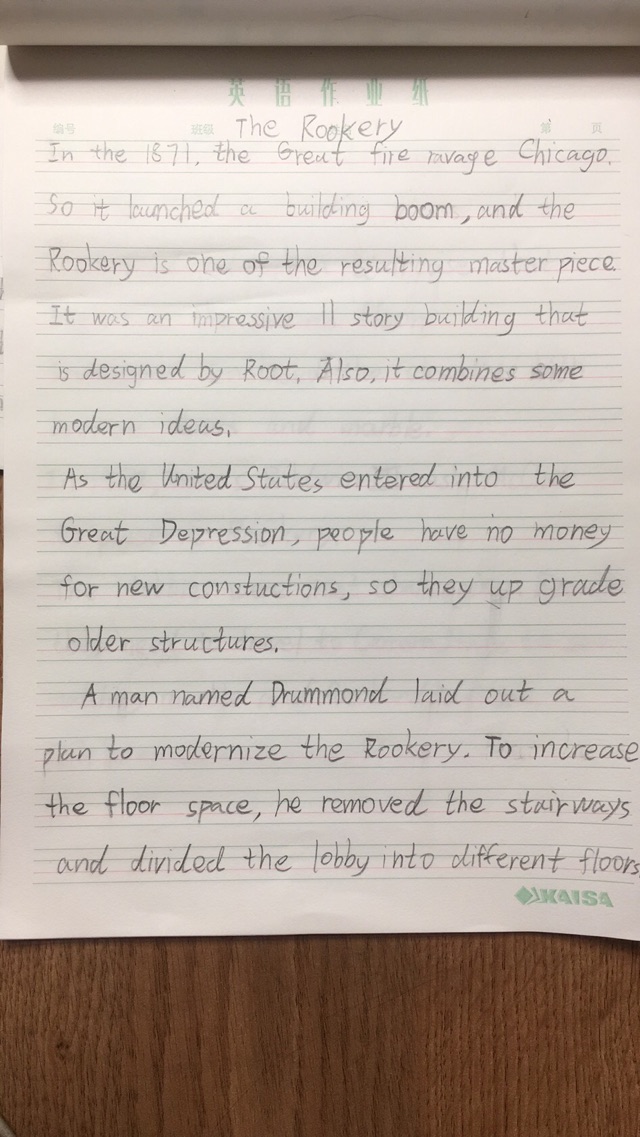 英语作业纸
编号 班级 第 页
The Rookery
In the 1871, the Great fire ravage Chicago.
So it launched a building boom, and the
Rookery is one of the resulting master piece.
It was an impressive 11 story building that
is designed by Root. Also, it combines some
modern ideas.
As the United States entered into the
Great Depression, people have no money
for new constuctions, so they up grade
older structures.
A man named Drummond laid out a
plan to modernize the Rookery. To increase
the floor space, he removed the stairways
and divided the lobby into different floors.
KAISA